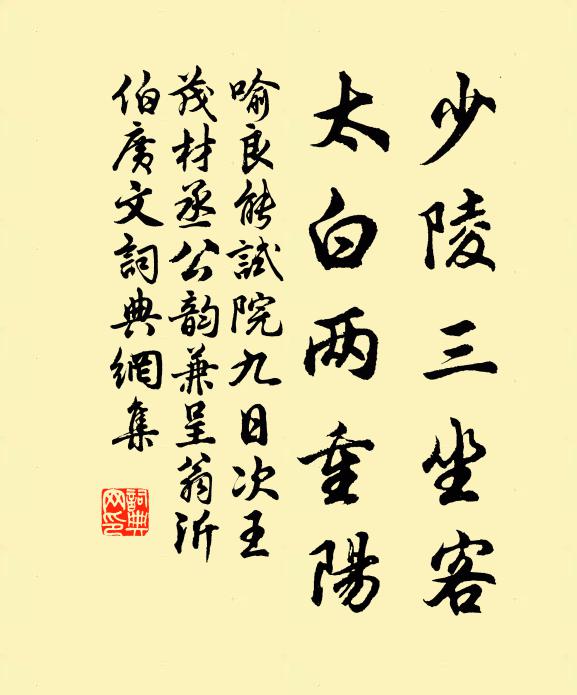 少陵三坐客
太白两重陽
喻良能試院九日次王
茂材丞公韵兼呈翁沂
伯廣文詞典網集
詞典网印